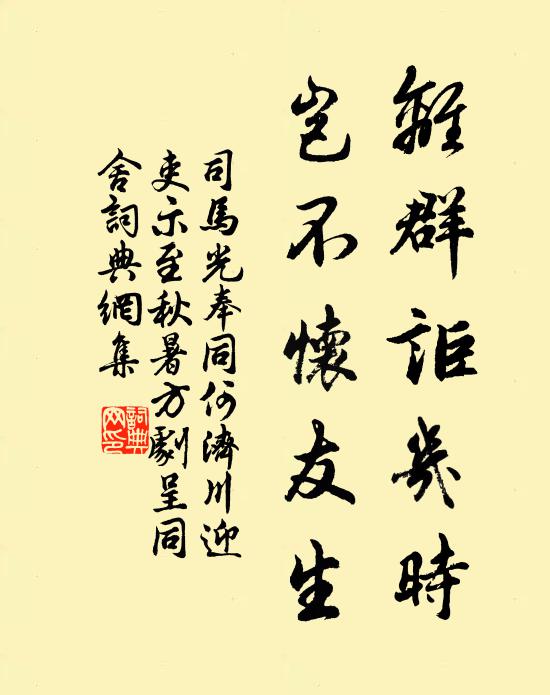 離群詎幾時
豈不懷友生
司馬光奉同何濟川迎
吏示至秋暑方劇呈同
舍詞典網集
詞典
网印